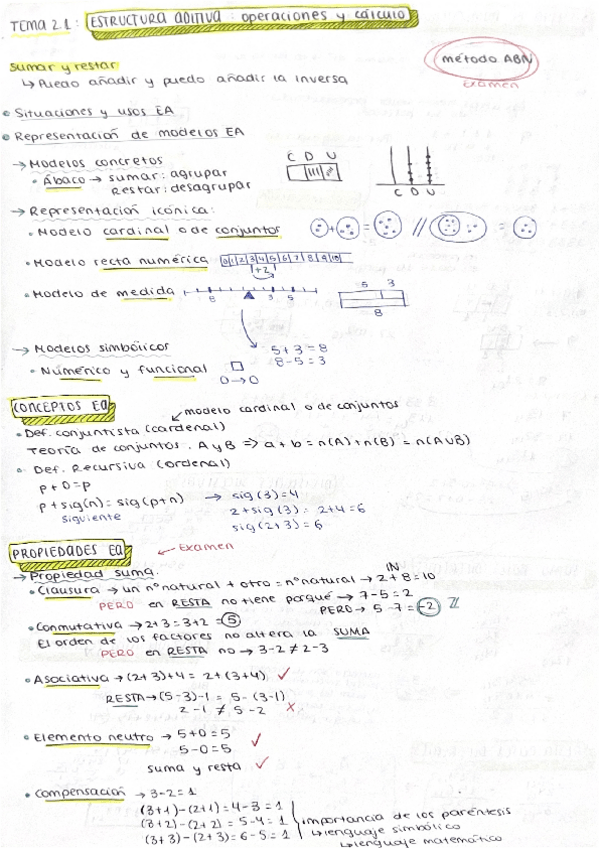 TEMA 2.1: ESTRUCTURA ADITIVA: operaciones y cálculo
sumar y restar
método ABN
↳ Puedo añadir y puedo añadir la inversa
Examen
• Situaciones y usos EA
• Representación de modelos EA
→ Modelos concretos
C D U
• Ábaco → sumar: agrupar
Restar: desagrupar
C D U
→ Representación icónica:
• Modelo cardinal o de conjuntos
• Modelo recta numérica 0 1 2 3 4 5 6 7 8 9 10
+2
• Modelo de medida
8 3 5
5 3
8
→ Modelos simbólicos
5+3=8
8-5=3
• Numérico y funcional
0→0
CONCEPTOS EA
modelo cardinal o de conjuntos
• Def. conjuntista (cardenal)
Teoría de conjuntos. A y B => a+b = n(A)+n(B) = n(A∪B)
• Def. Recursiva (ordenal)
p+0=p
p+sig(n)=sig(p+n) → sig(3)=4
siguiente
2+sig(3)= 2+4=6
sig(2+3)=6
PROPIEDADES EA ← Examen
→ Propiedad suma.
IN
• Clausura → un nº natural + otro = nº natural → 2+8=10
PERO en RESTA no tiene porqué → 7-5=2
PERO → 5-7=-2 ℤ
• Conmutativa → 2+3=3+2=5
El orden de los factores no altera la SUMA
PERO en RESTA no → 3-2≠2-3
• Asociativa → (2+3)+4 = 2+(3+4) ✓
RESTA → (5-3)-1 = 5-(3-1)
2-1 ≠ 5-2 ✗
• Elemento neutro → 5+0=5
5-0=5 ✓
suma y resta ✓
• Compensación → 3-2=1
(3+1)-(2+1)=4-3=1
(3+2)-(2+2)=5-4=1 importancia de los paréntesis
(3+3)-(2+3)=6-5=1 ↳ lenguaje simbólico
↳ lenguaje matemático